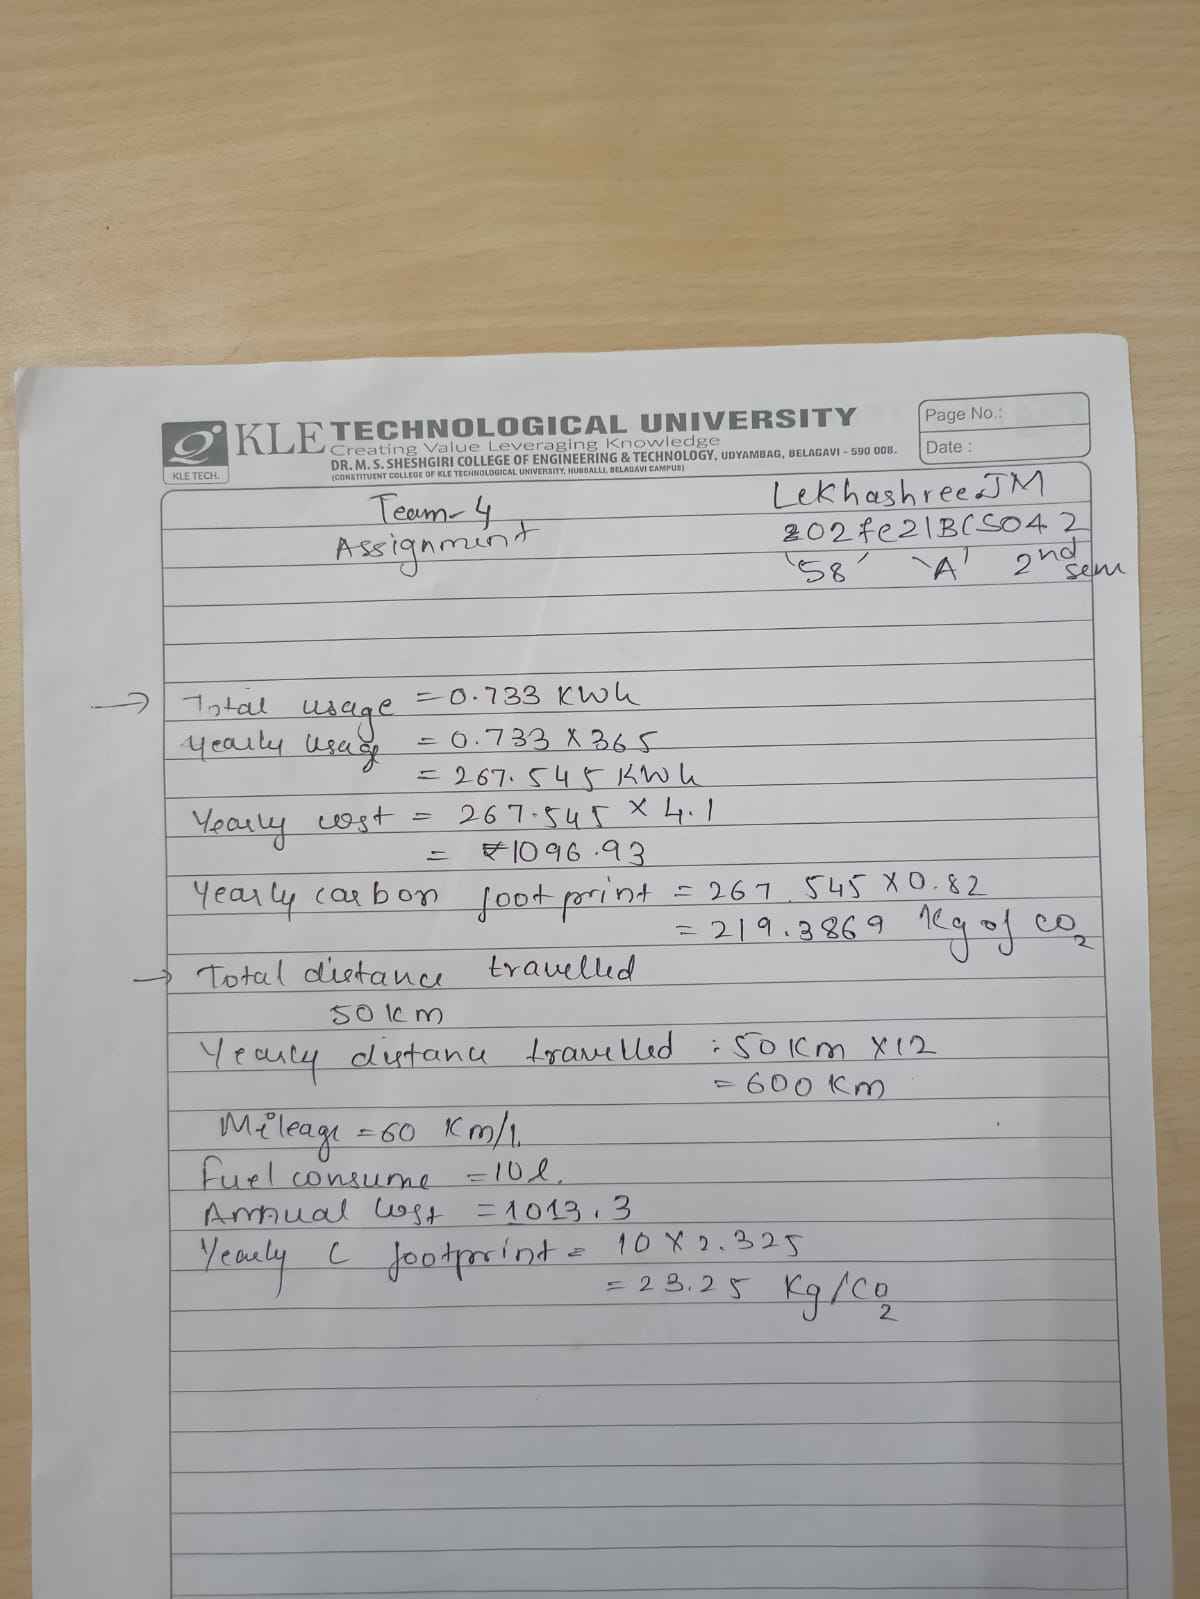 KLE TECH.
KLE TECHNOLOGICAL UNIVERSITY
Creating Value Leveraging Knowledge
DR. M. S. SHESHGIRI COLLEGE OF ENGINEERING & TECHNOLOGY, UDYAMBAG, BELAGAVI - 590 008.
(CONSTITUENT COLLEGE OF KLE TECHNOLOGICAL UNIVERSITY, HUBBALLI, BELAGAVI CAMPUS)
Page No.:
Date :
Team-4
Assignment
LekhashreeJM
202fe21BCS042
'58' 'A' 2nd sem
→ Total usage = 0.733 KWh
Yearly usage = 0.733 X 365
= 267.545 KWh
Yearly cost = 267.545 X 4.1
= ₹1096.93
Yearly carbon footprint = 267.545 X 0.82
= 219.3869 Kg of CO2
→ Total distance travelled
50 Km
Yearly distance travelled : 50 Km X12
= 600 Km
Mileage = 60 Km/l.
Fuel consume = 10 l.
Annual cost = 1013.3
Yearly C footprint = 10 X 2.325
= 23.25 Kg/CO2